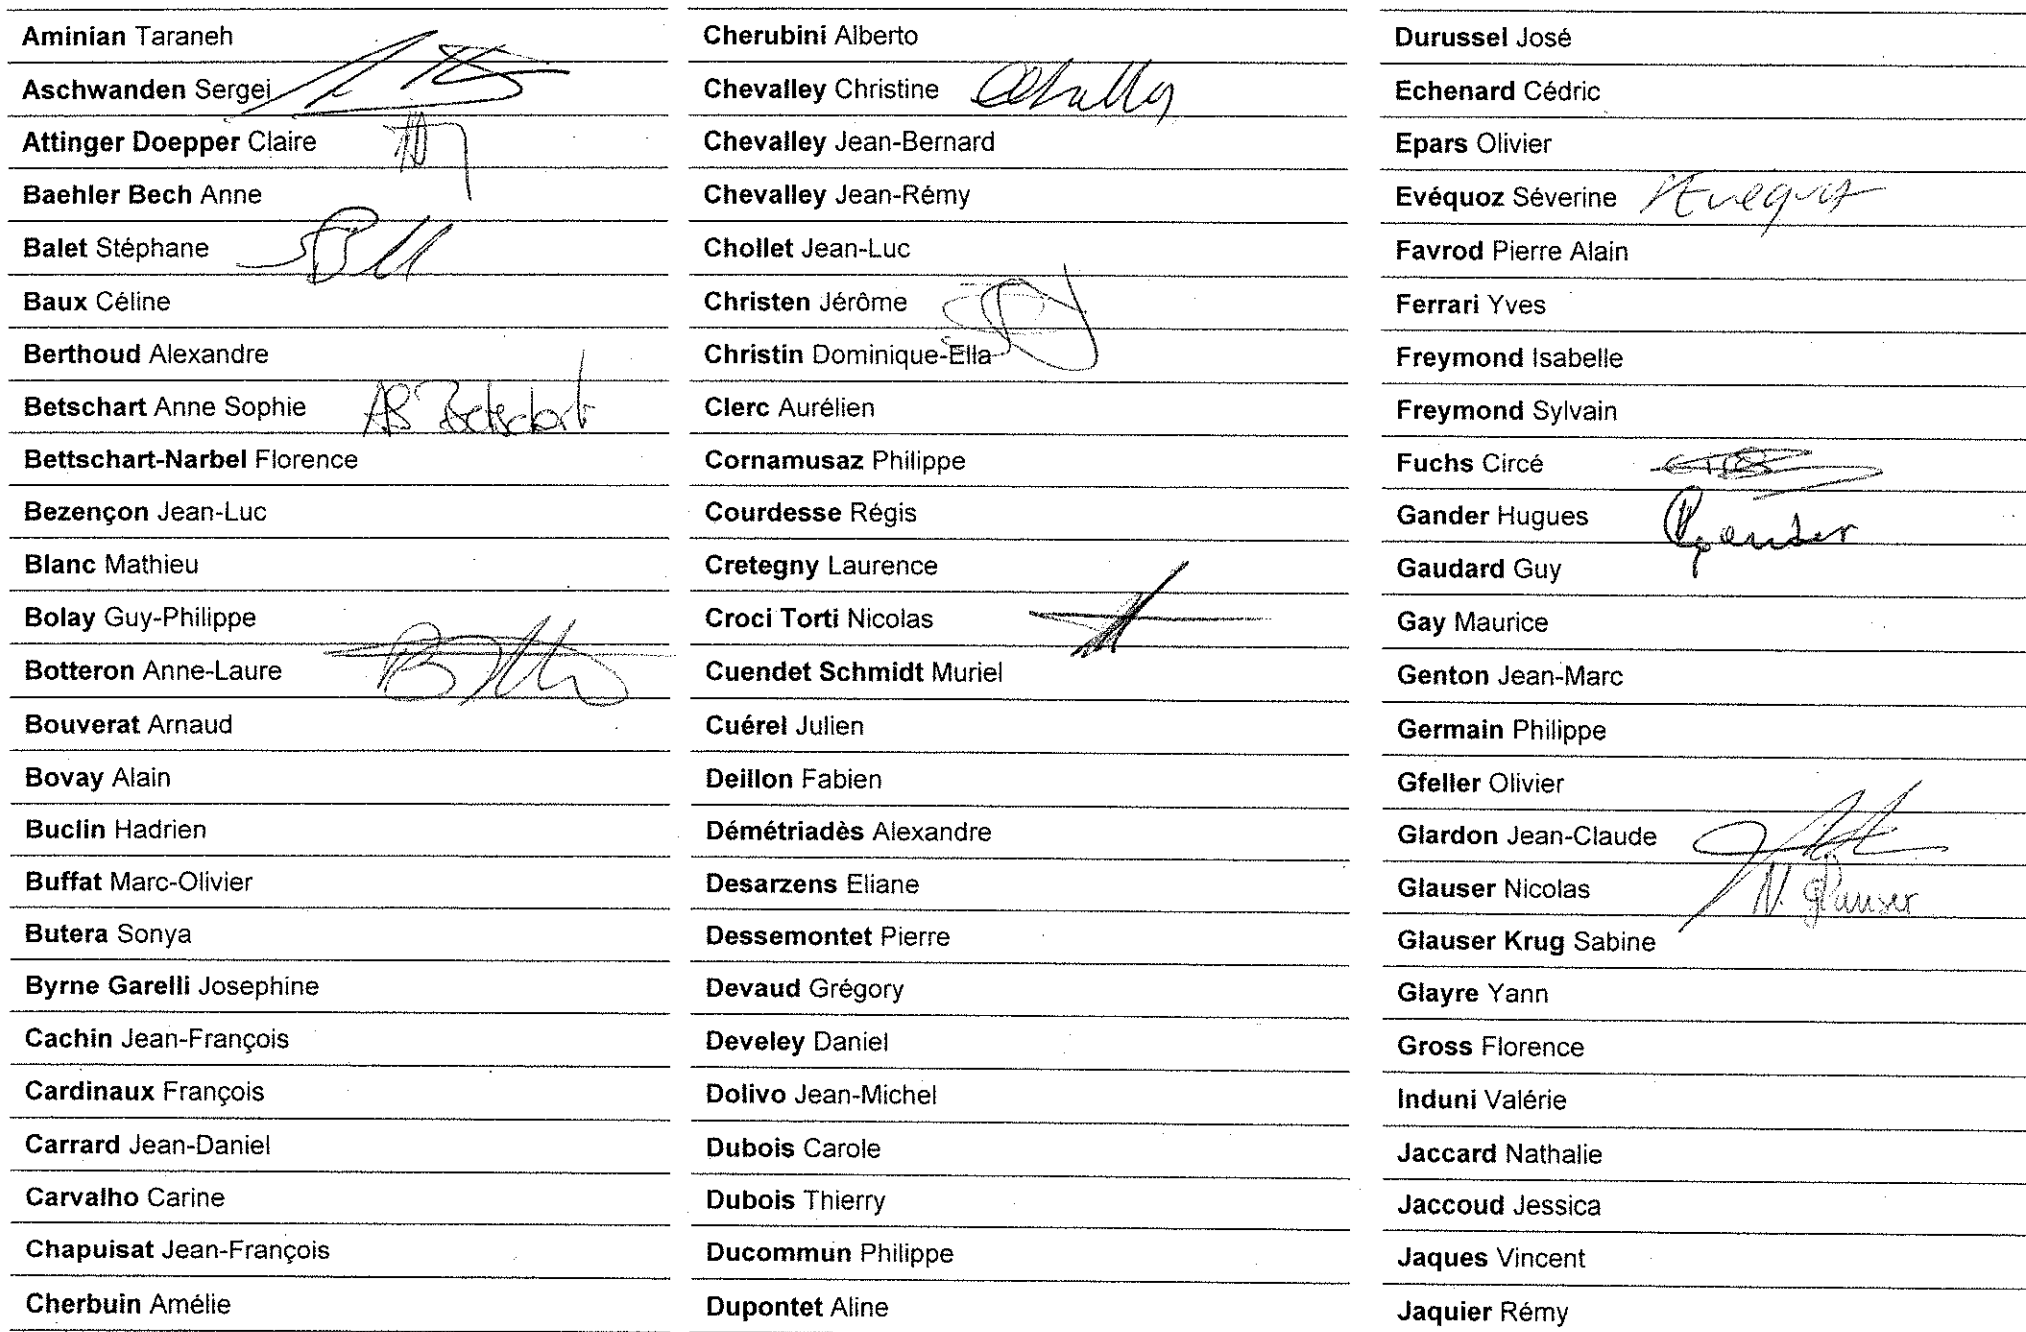 Aminian Taraneh
Aschwanden Sergei
Attinger Doepper Claire
Baehler Bech Anne
Balet Stéphane
Baux Céline
Berthoud Alexandre
Betschart Anne Sophie AS Betschart
Bettschart-Narbel Florence
Bezençon Jean-Luc
Blanc Mathieu
Bolay Guy-Philippe
Botteron Anne-Laure
Bouverat Arnaud
Bovay Alain
Buclin Hadrien
Buffat Marc-Olivier
Butera Sonya
Byrne Garelli Josephine
Cachin Jean-François
Cardinaux François
Carrard Jean-Daniel
Carvalho Carine
Chapuisat Jean-François
Cherbuin Amélie
Cherubini Alberto
Chevalley Christine
Chevalley Jean-Bernard
Chevalley Jean-Rémy
Chollet Jean-Luc
Christen Jérôme
Christin Dominique-Ella
Clerc Aurélien
Cornamusaz Philippe
Courdesse Régis
Cretegny Laurence
Croci Torti Nicolas
Cuendet Schmidt Muriel
Cuérel Julien
Deillon Fabien
Démétriadès Alexandre
Desarzens Eliane
Dessemontet Pierre
Devaud Grégory
Develey Daniel
Dolivo Jean-Michel
Dubois Carole
Dubois Thierry
Ducommun Philippe
Dupontet Aline
Durussel José
Echenard Cédric
Epars Olivier
Evéquoz Séverine
Favrod Pierre Alain
Ferrari Yves
Freymond Isabelle
Freymond Sylvain
Fuchs Circé
Gander Hugues Gander
Gaudard Guy
Gay Maurice
Genton Jean-Marc
Germain Philippe
Gfeller Olivier
Glardon Jean-Claude
Glauser Nicolas N. Glauser
Glauser Krug Sabine
Glayre Yann
Gross Florence
Induni Valérie
Jaccard Nathalie
Jaccoud Jessica
Jaques Vincent
Jaquier Rémy